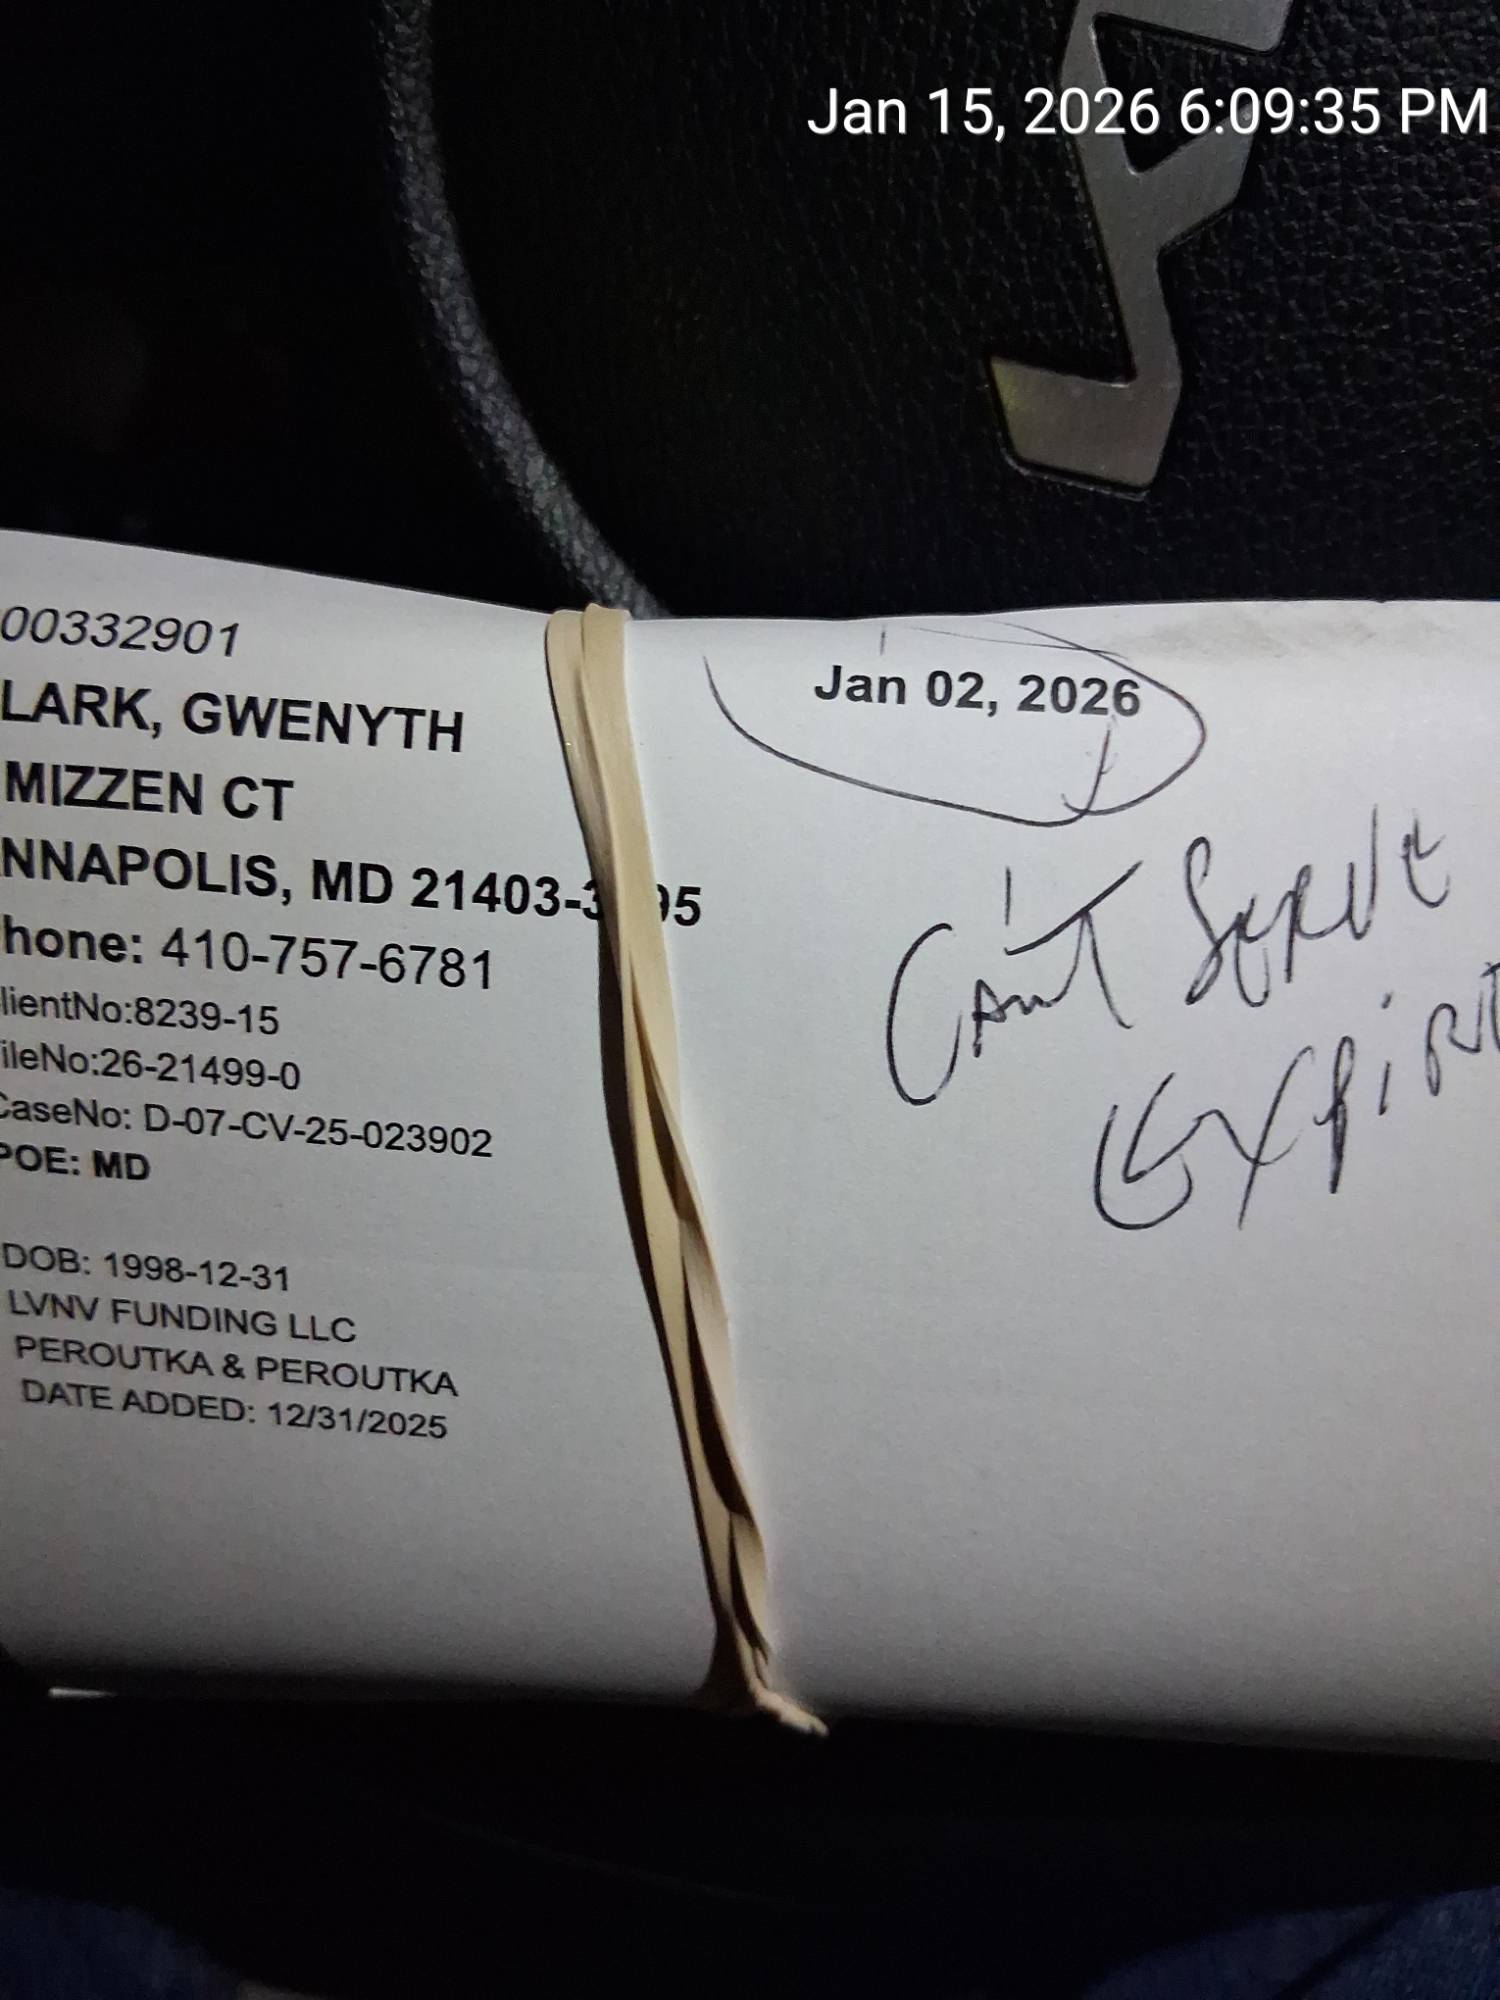 Jan 15, 2026 6:09:35 PM
00332901
LARK, GWENYTH
MIZZEN CT
NNAPOLIS, MD 21403-3 95
hone: 410-757-6781
lientNo:8239-15
ileNo:26-21499-0
CaseNo: D-07-CV-25-023902
POE: MD
DOB: 1998-12-31
LVNV FUNDING LLC
PEROUTKA & PEROUTKA
DATE ADDED: 12/31/2025
Jan 02, 2026
Can't Serve